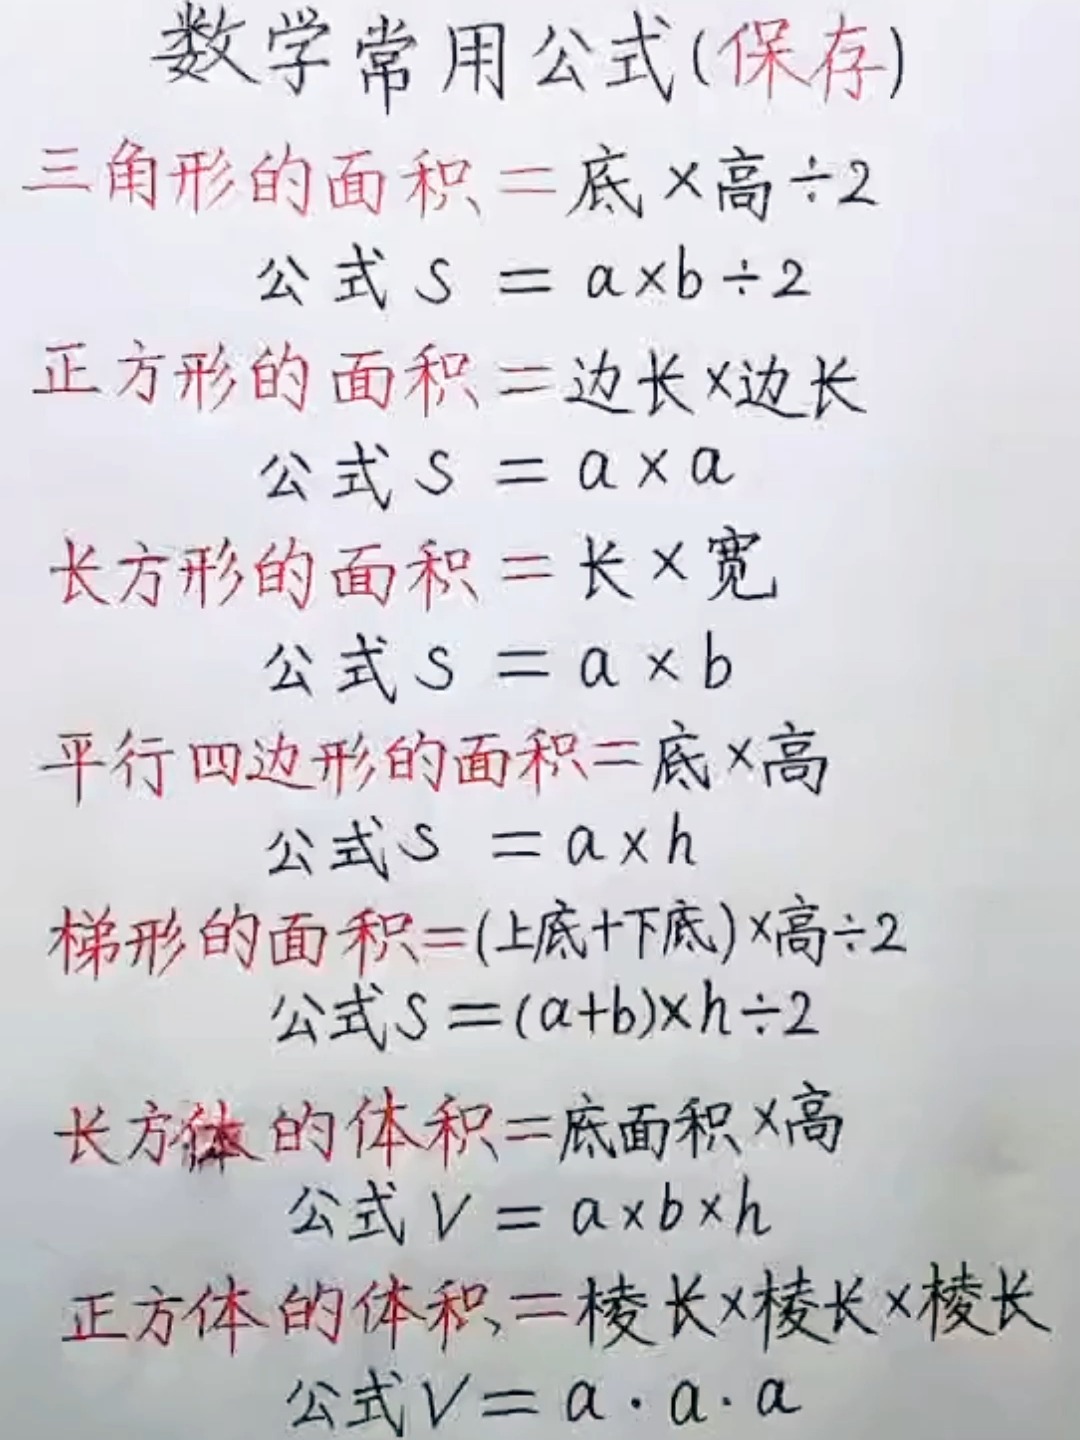 数学常用公式(保存)
三角形的面积=底×高÷2
公式S=a×b÷2
正方形的面积=边长×边长
公式S=a×a
长方形的面积=长×宽
公式S=a×b
平行四边形的面积=底×高
公式S=a×h
梯形的面积=(上底+下底)×高÷2
公式S=(a+b)×h÷2
长方体的体积=底面积×高
公式V=a×b×h
正方体的体积=棱长×棱长×棱长
公式V=a·a·a